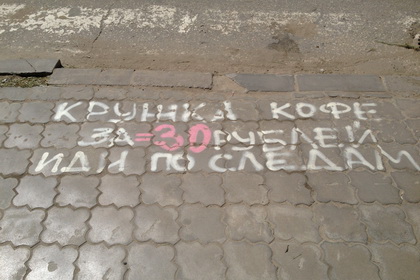 КРУЖКА КОФЕ
ЗА =30 РУБЛЕЙ
ИДИ ПО СЛЕДАМ